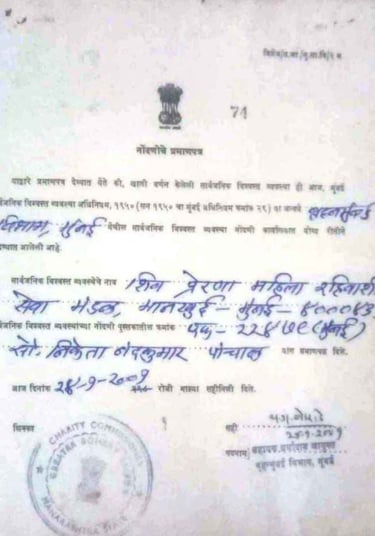 74
नोंदणीचे प्रमाणपत्र
याद्वारे प्रमाणपत्र देण्यात येते की, खाली वर्णन केलेली सार्वजनिक विश्वस्त व्यवस्था ही आज, मुंबई
सार्वजनिक विश्वस्त व्यवस्था अधिनियम, १९५० (सन १९५० चा मुंबई अधिनियम क्रमांक २९) या अन्वये बृहन्मुंबई
विभाग, मुंबई येथील सार्वजनिक विश्वस्त व्यवस्था नोंदणी कार्यालयात योग्य रीतीने
नोंदण्यात आलेली आहे.
सार्वजनिक विश्वस्त व्यवस्थेचे नाव शिव प्रेरणा महिला रहिवाशी
सेवा मंडळ, मानखुर्द - मुंबई - ४०००४३
सार्वजनिक विश्वस्त व्यवस्थांच्या नोंदणी पुस्तकातील क्रमांक (मुंबई)
सौ. नंदकुमार पांचाळ यांस प्रमाणपत्र दिले.
आज दिनांक २४-१-२००१ रोजी माझ्या सहीनिशी दिले.
शिक्का
सही
२४-१-२००१
पदनाम सहायक धर्मादाय आयुक्त
बृहन्मुंबई विभाग, मुंबई
CHARITY COMMISSIONER
GREATER BOMBAY
MAHARASHTRA STATE